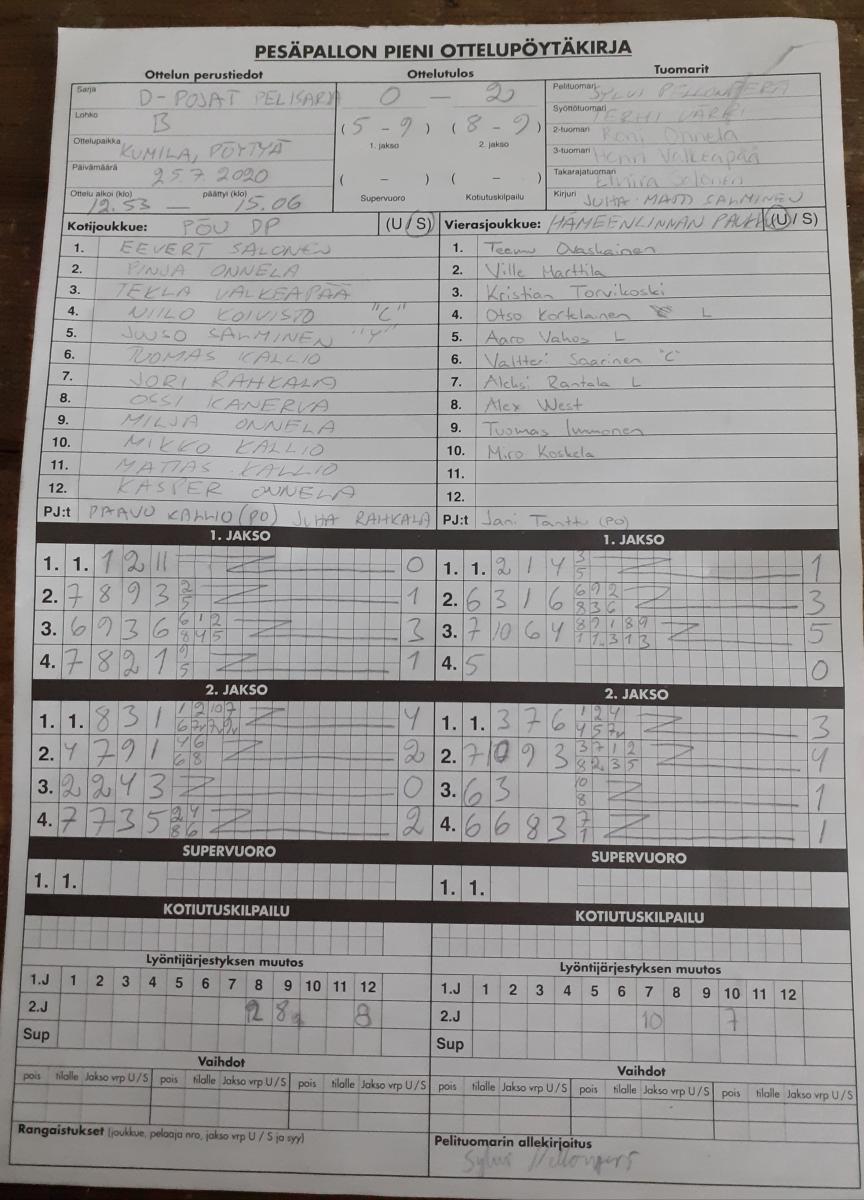 PESÄPALLON PIENI OTTELUPÖYTÄKIRJA
Ottelun perustiedot Ottelutulos Tuomarit
Sarja D-POJAT PELISARJA 0 – 2 Pelituomari SYLVI
Lohko B (5 – 9) (8 – 9) Syöttötuomari TERHI
1. jakso 2. jakso 2-tuomari Roni Onnela
Ottelupaikka KUMILA, PÖYTYÄ 3-tuomari Henri Valkeapää
Päivämäärä 25.7.2020 ( – ) ( – ) Takarajatuomari Elmira Salonen
Ottelu alkoi (klo) päättyi (klo) 12.53 – 15.06 Supervuoro Kotiutuskilpailu Kirjuri JUHA-MATTI SALMINEN
Kotijoukkue: PÖU DP (U/S) Vierasjoukkue: HÄMEENLINNAN (U/S)
1. EEVERT SALONEN 1. Teemu Ovaskainen
2. PINJA ONNELA 2. Ville Marttila
3. TEKLA VALKEAPÄÄ 3. Kristian Torvikoski
4. NIILO KOIVISTO "C" 4. Otso Kortelainen L
5. JUUSO SALMINEN "Y" 5. Aaro Vahos L
6. TUOMAS KALLIO 6. Valtteri Saarinen "C"
7. JORI RAHKALA 7. Aleksi Rantala L
8. OSSI KANERVA 8. Alex West
9. MILJA ONNELA 9. Tuomas Immonen
10. MIKKO KALLIO 10. Miro Koskela
11. MATIAS KALLIO 11.
12. KASPER ONNELA 12.
PJ:t PAAVO KALLIO (PO) JUHA RAHKALA PJ:t Jani Tanttu (PO)
1. JAKSO 1. JAKSO
1. 1. 1 2 11 0 1. 1. 2 1 4 3 5 1
2. 7 8 9 3 2 5 1 2. 6 3 1 6 6 9 2 8 3 6 3
3. 6 9 3 6 6 1 2 8 4 5 3 3. 7 10 6 4 8 9 1 8 9 1 1 . 3 1 3 5
4. 7 8 2 1 9 5 1 4. 5 0
2. JAKSO 2. JAKSO
1. 1. 8 3 1 1 2 10 7 4 1. 1. 3 7 6 1 2 4 4 5 7 3
2. 4 7 9 1 4 6 6 8 2 2. 7 10 9 3 3 7 1 2 8 2 3 5 4
3. 2 2 4 3 0 3. 6 3 10 8 1
4. 7 7 3 5 2 4 8 6 2 4. 6 6 8 3 7 1 1
SUPERVUORO SUPERVUORO
1. 1. 1. 1.
KOTIUTUSKILPAILU KOTIUTUSKILPAILU
Lyöntijärjestyksen muutos Lyöntijärjestyksen muutos
1.J 1 2 3 4 5 6 7 8 9 10 11 12 1.J 1 2 3 4 5 6 7 8 9 10 11 12
2.J 8 2.J 10 7
Sup Sup
Vaihdot Vaihdot
pois tilalle Jakso vrp U/S pois tilalle Jakso vrp U/S pois tilalle Jakso vrp U/S pois tilalle Jakso vrp U/S pois tilalle Jakso vrp U/S pois tilalle Jakso vrp U/S
Rangaistukset (joukkue, pelaaja nro, jakso vrp U / S ja syy) Pelituomarin allekirjoitus
Sylvi